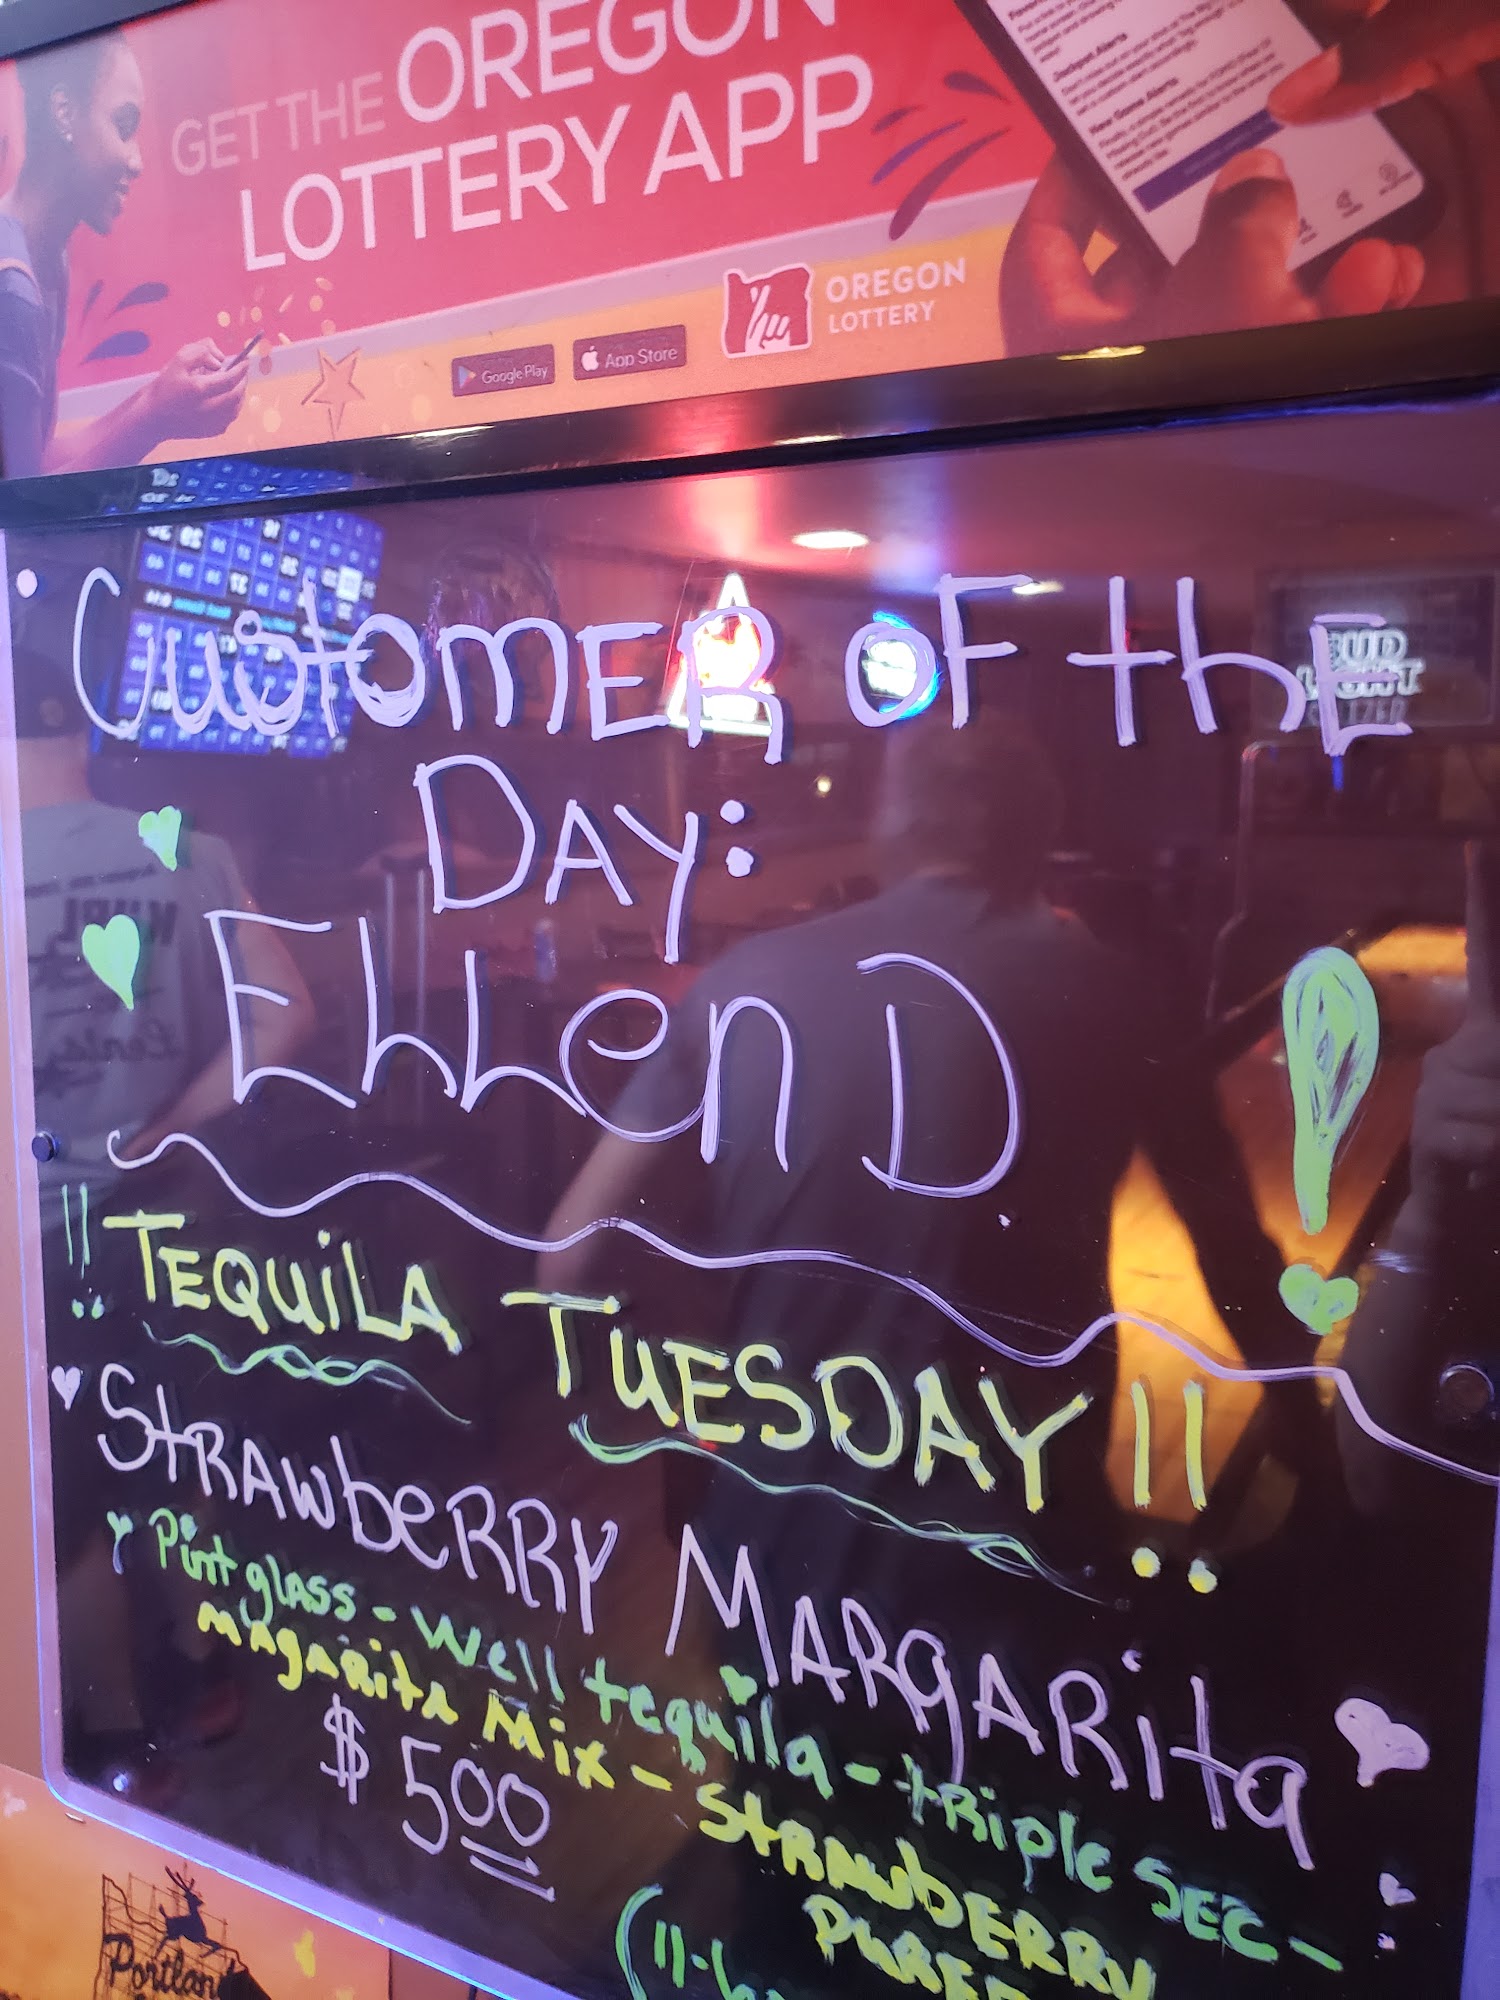 GET THE OREGON
LOTTERY APP
Jackpot Alerts
New Game Alerts
Google Play
App Store
OREGON
LOTTERY
Customer of the
Day:
Ellen D
!! Tequila Tuesday!!
Strawberry Margarita
Pint glass - Well tequila - triple sec -
magarita Mix - Strawberry
puree
$ 500
BUD
LIGHT
Portland